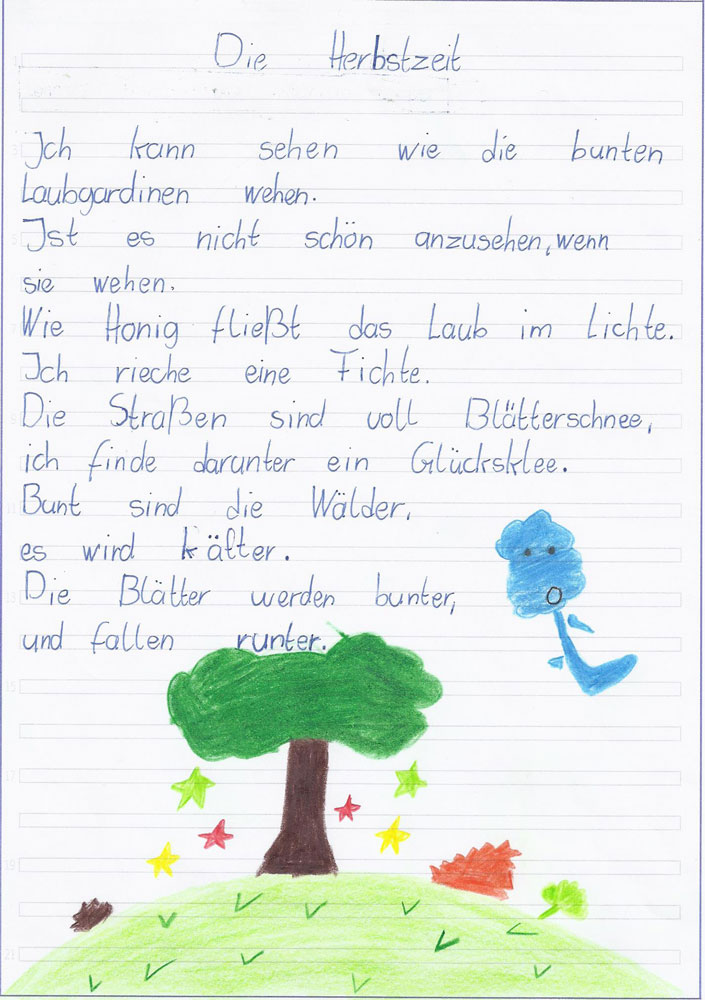 Die Herbstzeit
Ich kann sehen wie die bunten
Laubgardinen wehen.
Ist es nicht schön anzusehen, wenn
sie wehen.
Wie Honig fließt das Laub im Lichte.
Ich rieche eine Fichte.
Die Straßen sind voll Blätterschnee,
ich finde darunter ein Glücksklee.
Bunt sind die Wälder,
es wird kälter.
Die Blätter werden bunter,
und fallen runter.